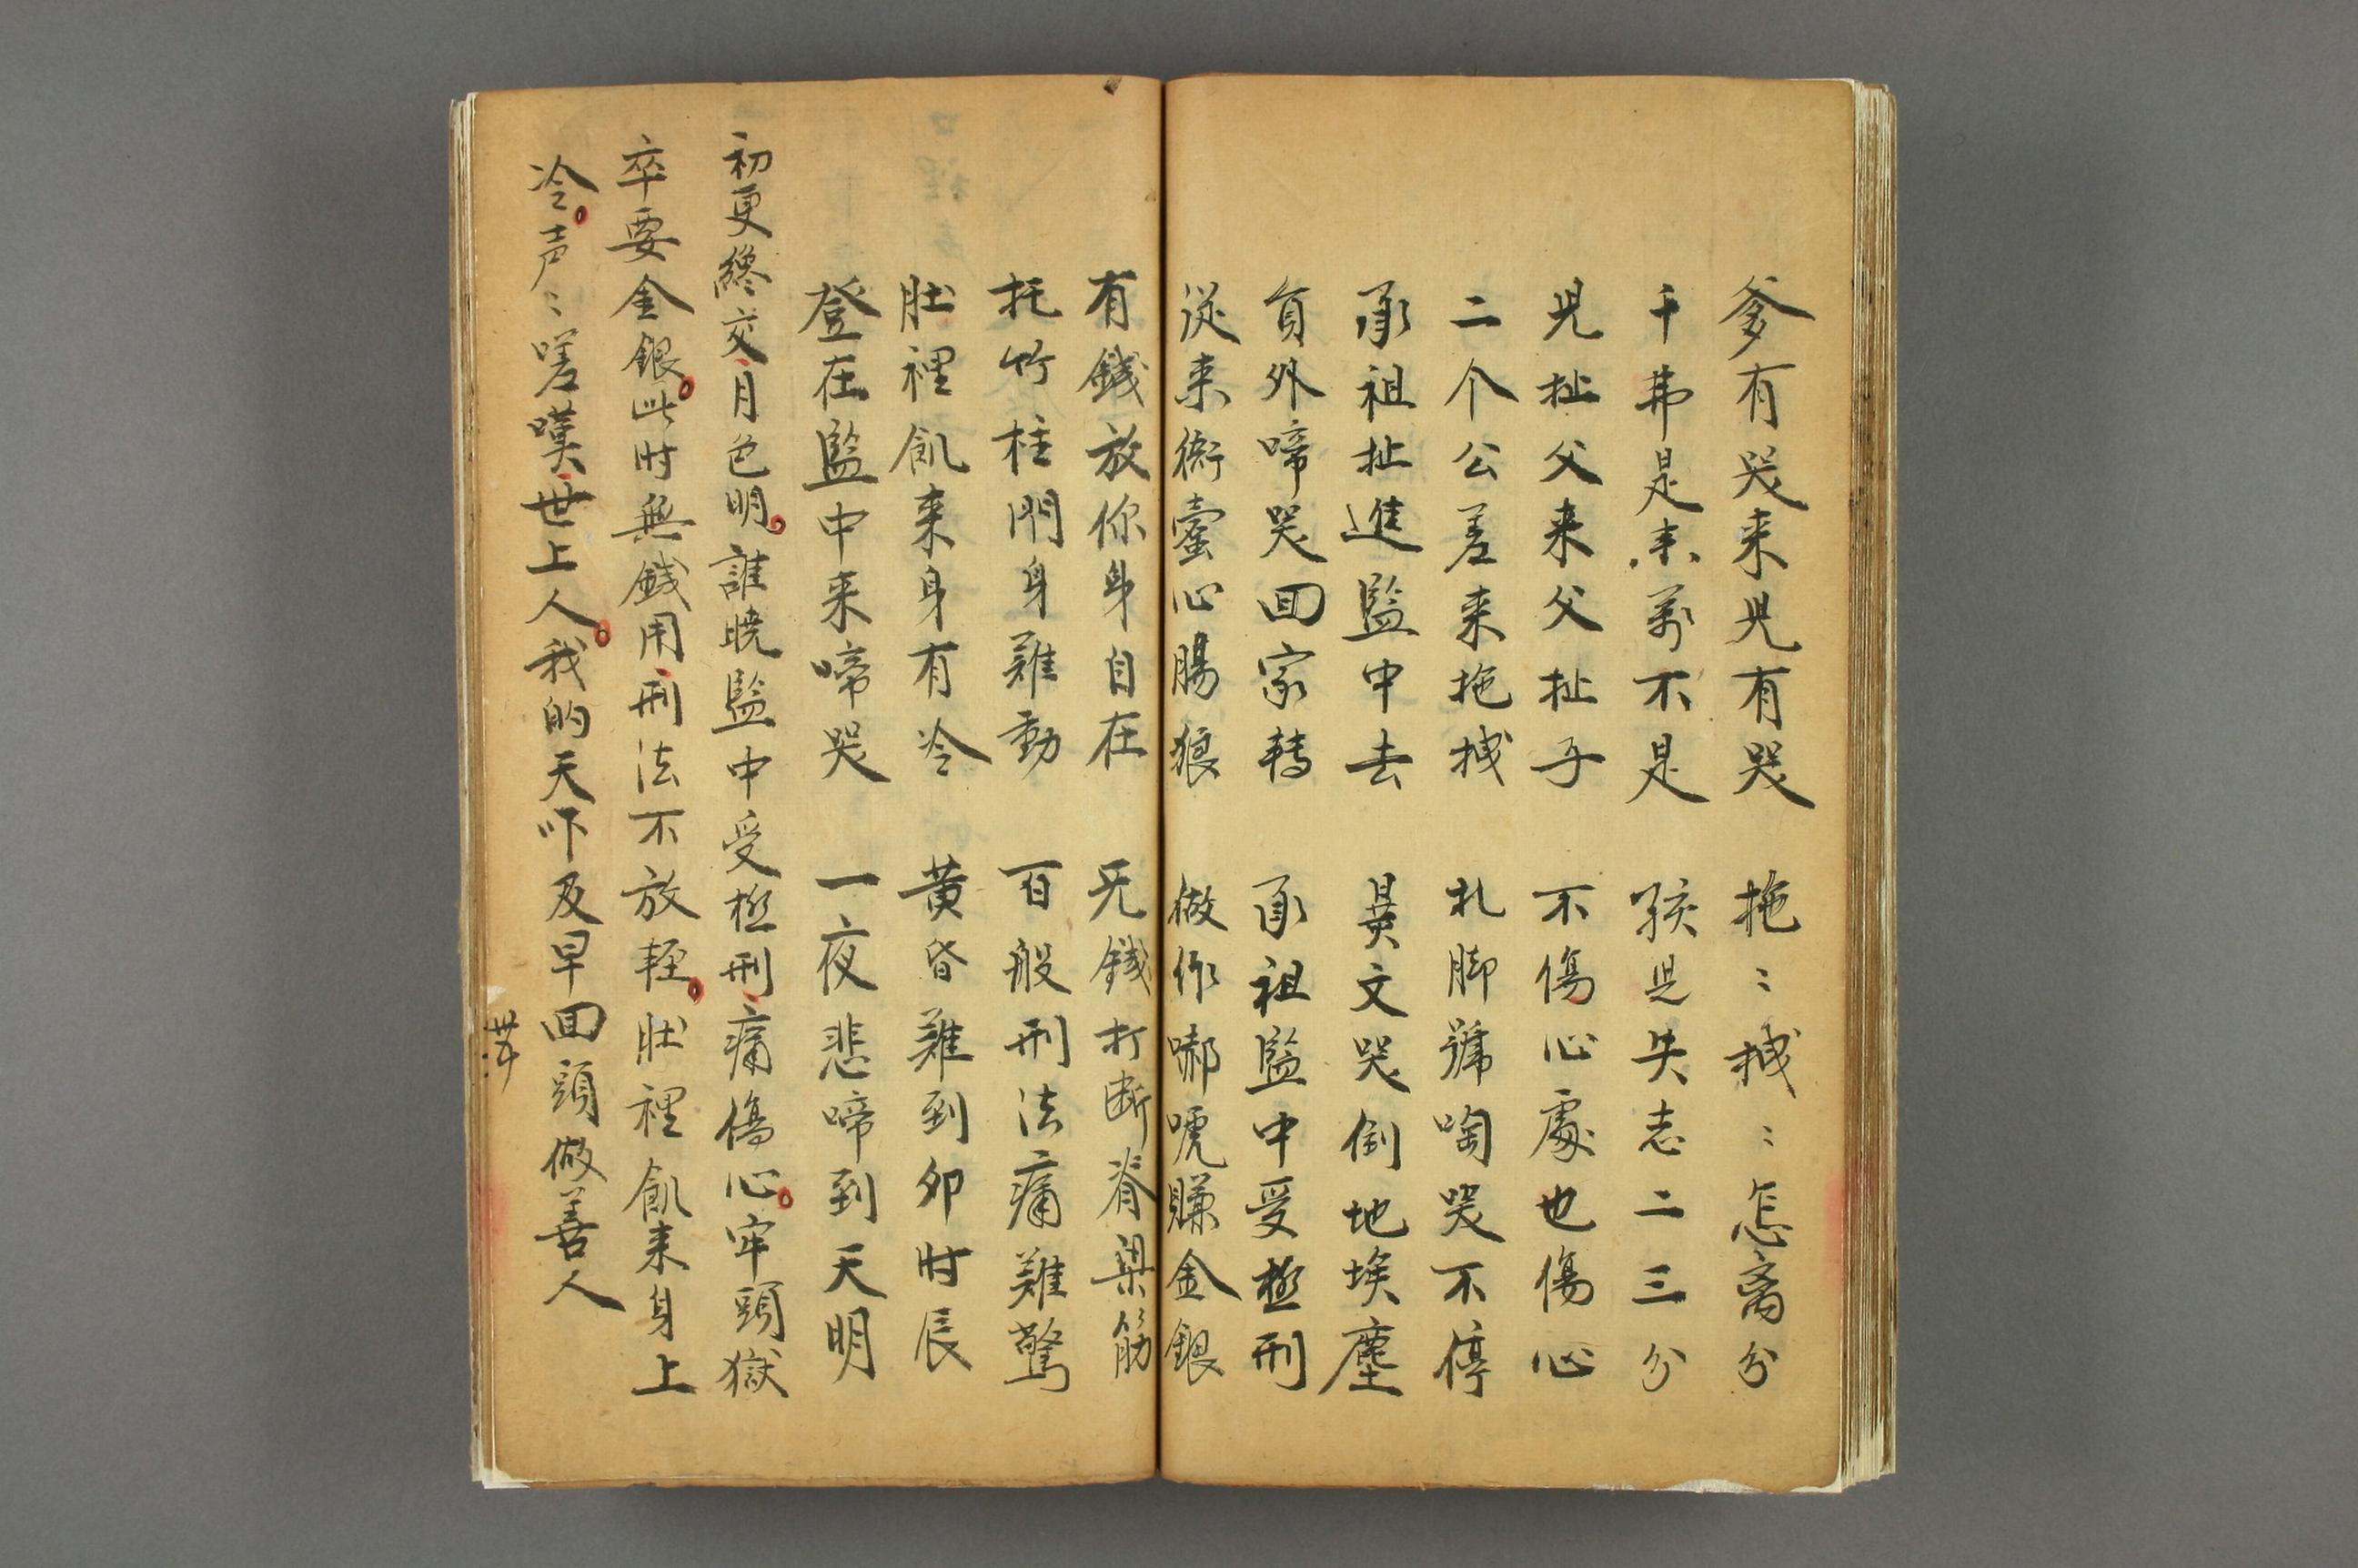 爹有哭来児有哭　拖〻拽〻怎离分
千弗是来萬不是　孩児失志二三分
児扯父来父扯子　不傷心處也傷心
二个公差来拖拽　扎脚號啕哭不停
承祖扯進監中去　員文哭倒地埃塵
員外啼哭回家轉　承祖監中受極刑
從来衙蠹心腸狠　做作嚇唬賺金銀
有銭放你身自在　无銭打断脊梁筋
托竹柱門身難動　百般刑法痛難驚
肚裡飢来身有冷　黄昏難到卯时辰
登在監中来啼哭　一夜悲啼到天明
初更纔交月色明誰曉監中受極刑痛傷心牢頭獄
卒要金銀此时無銭用刑法不放輕肚裡飢来身上
冷声〻嗟嘆世上人我的天吓及早回頭做善人